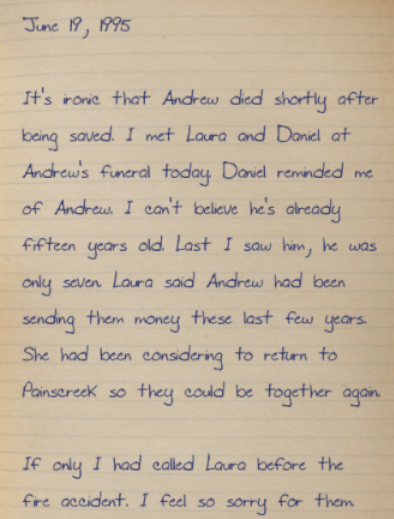 June 19, 1995
It's ironic that Andrew died shortly after
being saved. I met Laura and Daniel at
Andrew's funeral today. Daniel reminded me
of Andrew. I can't believe he's already
fifteen years old. Last I saw him, he was
only seven. Laura said Andrew had been
sending them money these last few years.
She had been considering to return to
Painscreek so they could be together again.
If only I had called Laura before the
fire accident. I feel so sorry for them